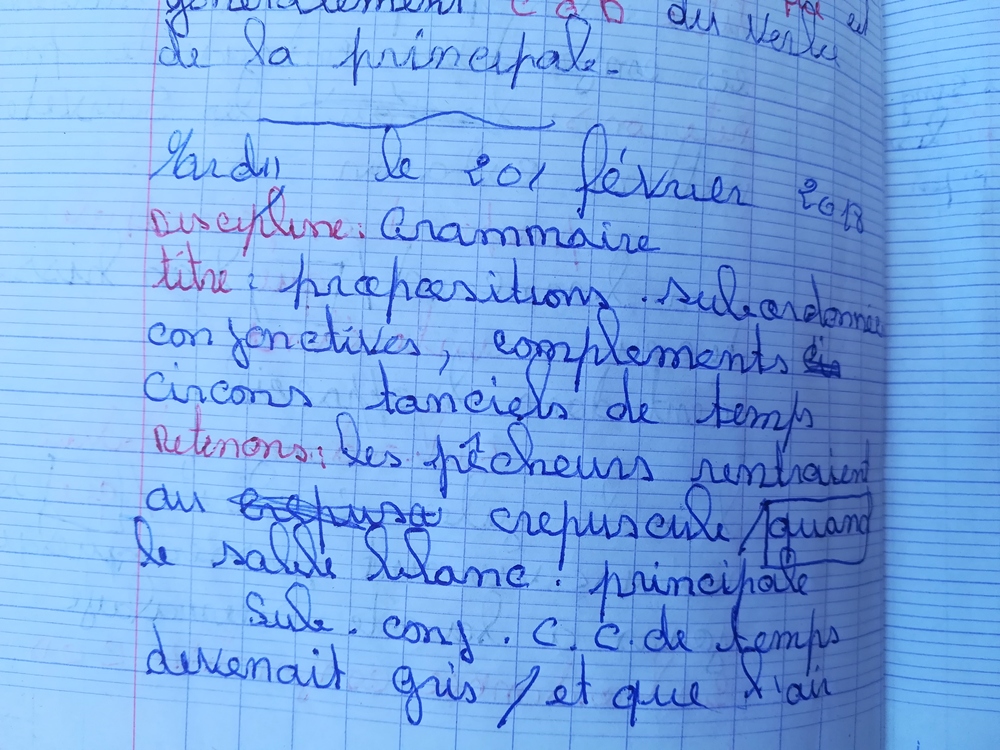 généralement C O D du verbe
de la principale.
Mardi le 201 février 2018
Discipline: Grammaire
titre: propositions subordonnée
conjonctives, complements
circons tanciels de temps
Retenons: les pêcheurs rentraient
au crepuscule / quand
le sable blanc ! principale
Sub. conj. C. C. de temps
devenait gris / et que l'air